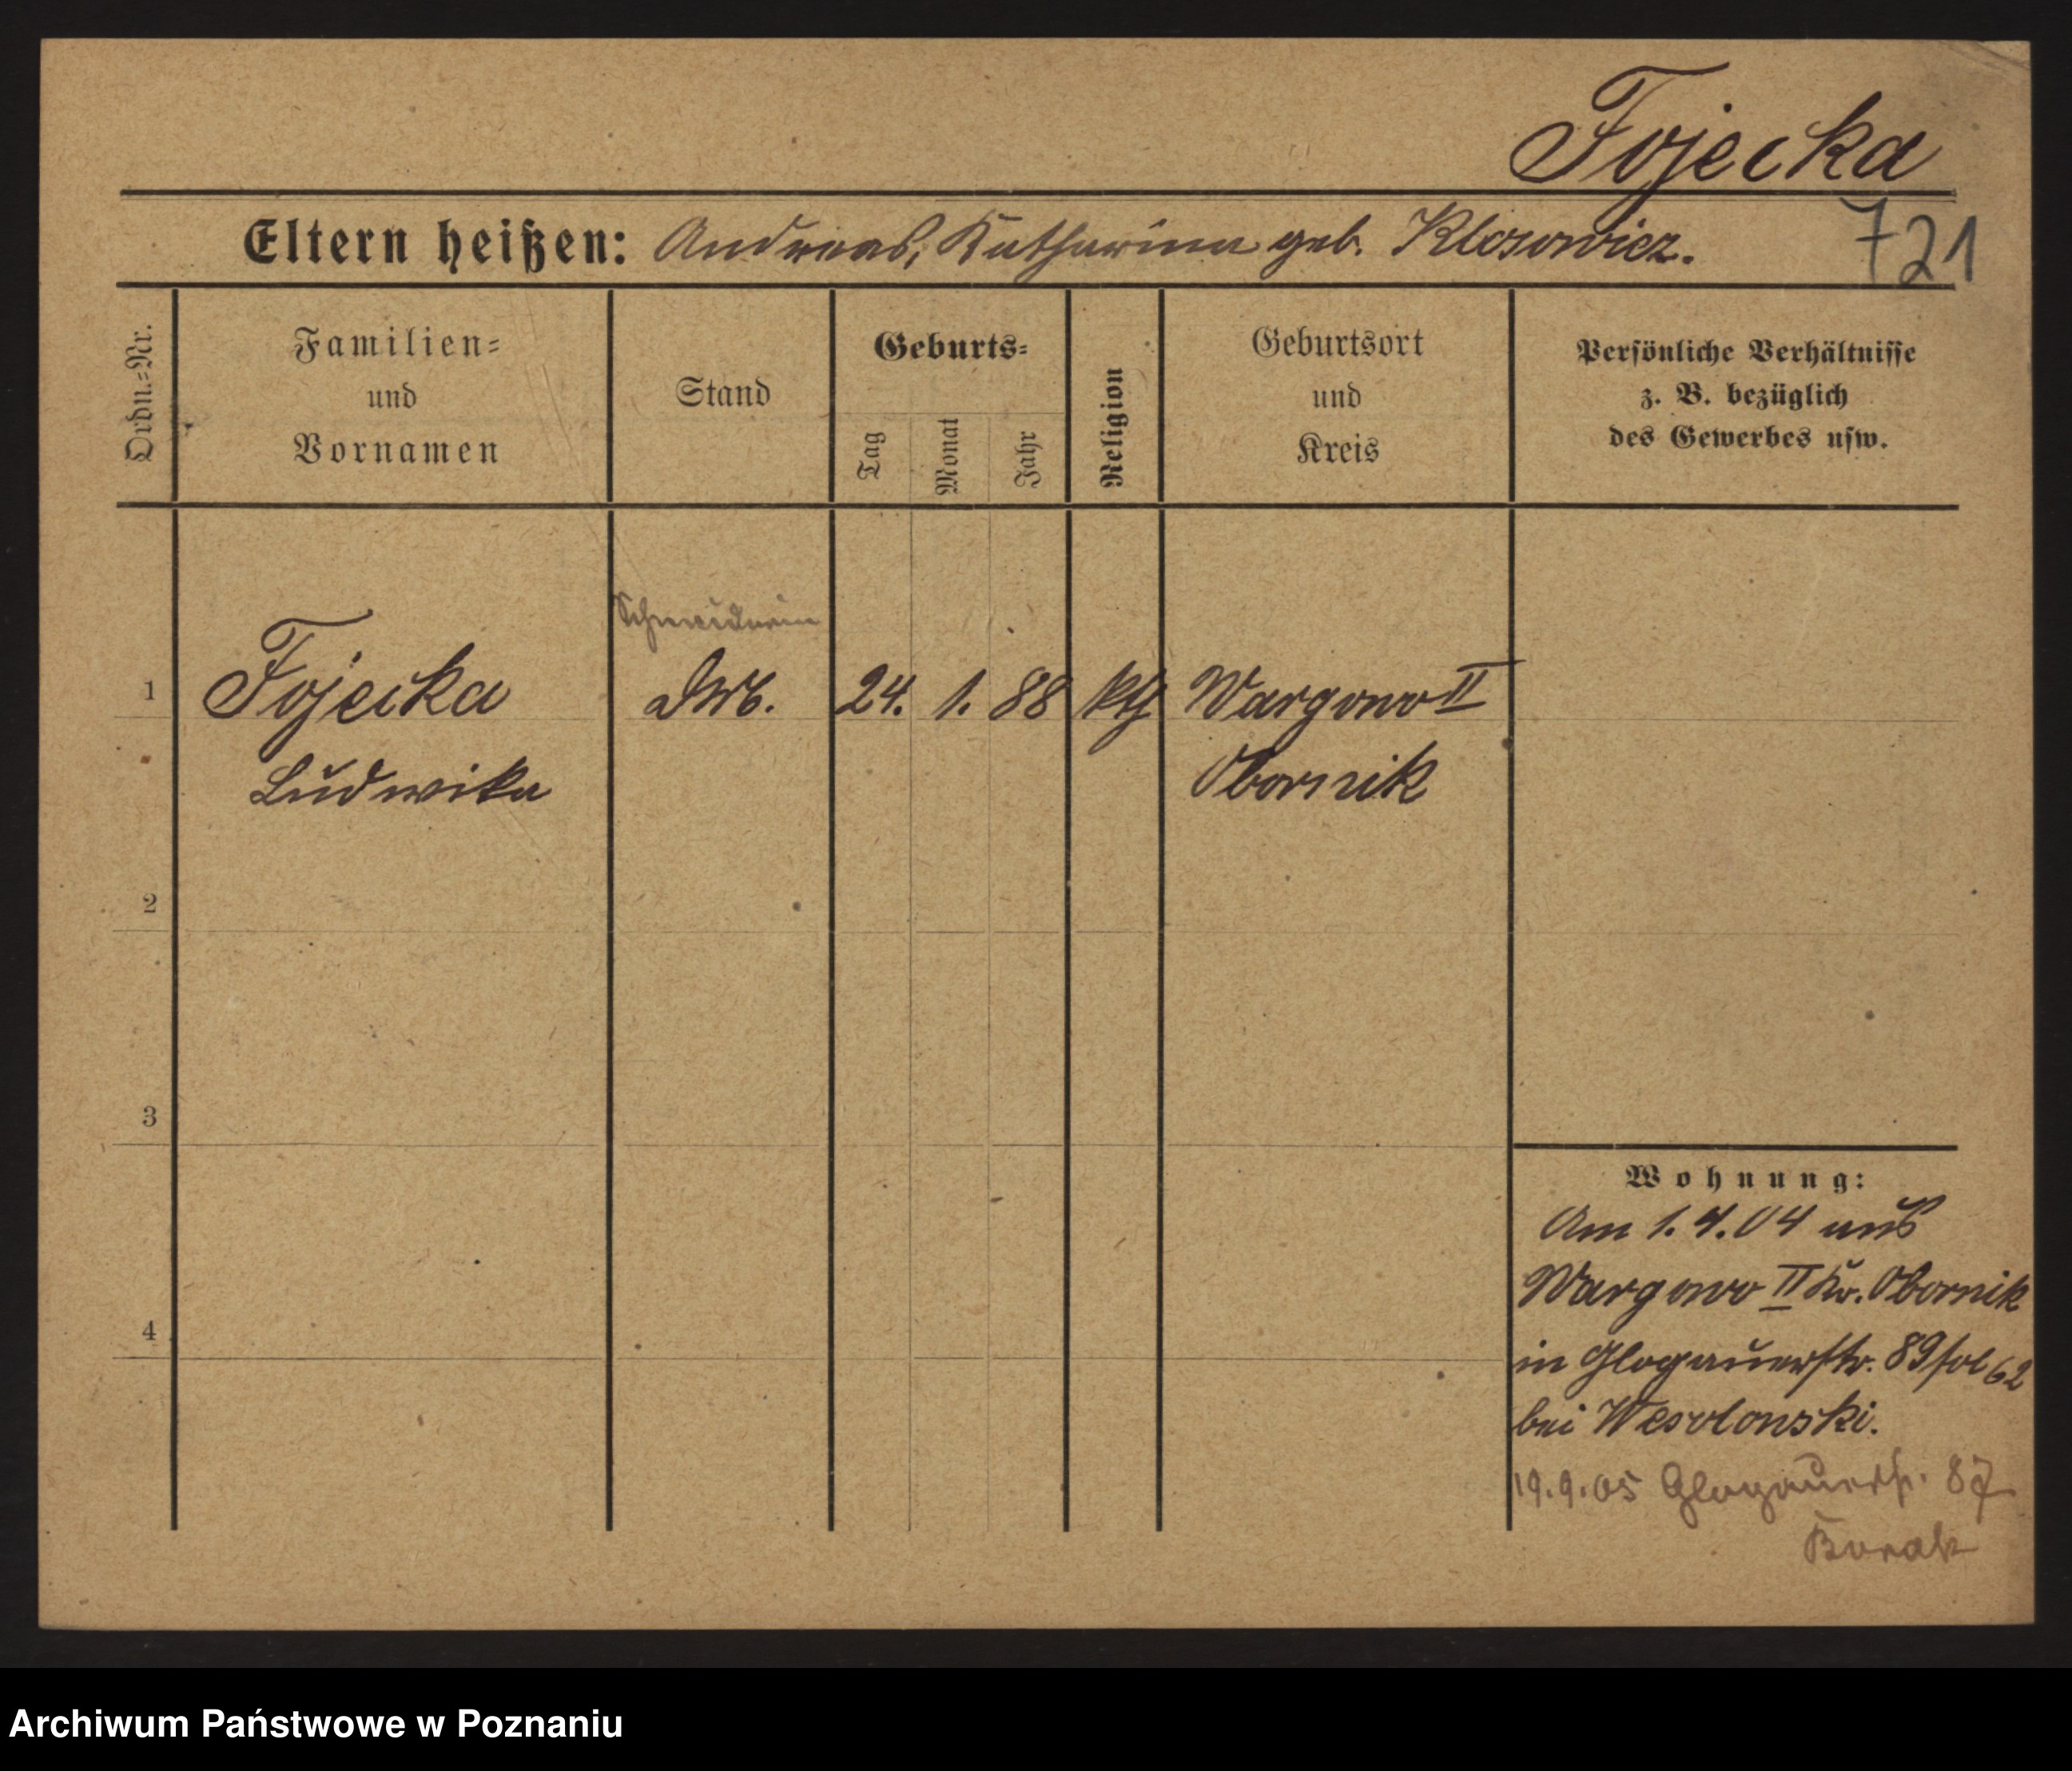 Fojecka
Eltern heißen: Andreas, Katharina geb. Klosowicz.
721
Ordn.=Nr.
Familien=
und
Vornamen
Stand
Geburts=
Tag
Monat
Jahr
Religion
Geburtsort
und
Kreis
Persönliche Verhältnisse
z. B. bezüglich
des Gewerbes usw.
Schneiderin
1 Fojecka 24. 1. 88 kth Wargowo II
Ludwika Obornik
2
3
4
Wohnung:
Am 1.4.04 aus
Wargowo II Kr. Obornik
in Glogauerstr. 89 62
bei Wesolowski.
19.9.05 Glogauerstr. 87
Archiwum Państwowe w Poznaniu